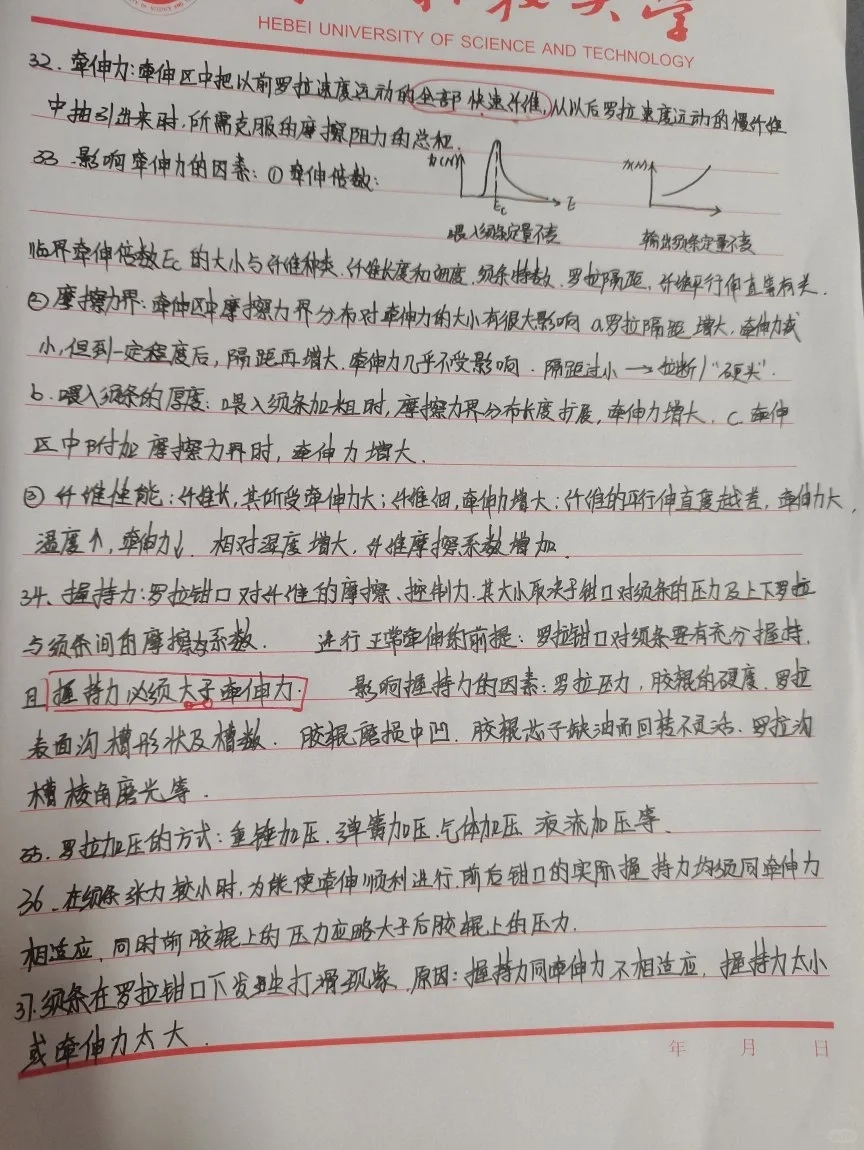 HEBEI UNIVERSITY OF SCIENCE AND TECHNOLOGY
32. 牵伸力:牵伸区中把以前罗拉速度运动的全部快速纤维,从以后罗拉速度运动的慢纤维
中抽引出来时,所需克服的摩擦阻力的总和.
33. 影响牵伸力的因素: ① 牵伸倍数:
力(N)
Ec
E
喂入须条定量不变
力(N)
输出须条定量不变
临界牵伸倍数Ec的大小与纤维种类、纤维长度和细度、须条特数、罗拉隔距、纤维平行伸直等有关.
② 摩擦力界: 牵伸区中摩擦力界分布对牵伸力的大小有很大影响 a.罗拉隔距增大,牵伸力减
小,但到一定程度后,隔距再增大,牵伸力几乎不受影响. 隔距过小→拉断/"硬头".
b. 喂入须条的厚度: 喂入须条加粗时,摩擦力界分布长度扩展,牵伸力增大. C. 牵伸
区中附加摩擦力界时,牵伸力增大.
③ 纤维性能:纤维长,其所受牵伸力大;纤维细,牵伸力增大;纤维的平行伸直度越差,牵伸力大,
温度↑,牵伸力↓. 相对湿度增大,纤维摩擦系数增加.
34、握持力:罗拉钳口对纤维的摩擦、控制力.其大小取决于钳口对须条的压力及上下罗拉
与须条间的摩擦系数. 进行正常牵伸的前提:罗拉钳口对须条要有充分握持,
且握持力必须大于牵伸力. 影响握持力的因素:罗拉压力,胶辊的硬度、罗拉
表面沟槽形状及槽数. 胶辊磨损中凹. 胶辊芯子缺油而回转不灵活、罗拉沟
槽棱角磨光等.
35. 罗拉加压的方式:重锤加压、弹簧加压、气体加压、液流加压等.
36. 在须条张力较小时,为能使牵伸顺利进行,前后钳口的实际握持力均须同牵伸力
相适应,同时前胶辊上的压力应略大于后胶辊上的压力.
37. 须条在罗拉钳口下发生打滑现象. 原因:握持力同牵伸力不相适应,握持力太小
或牵伸力太大.
年 月 日